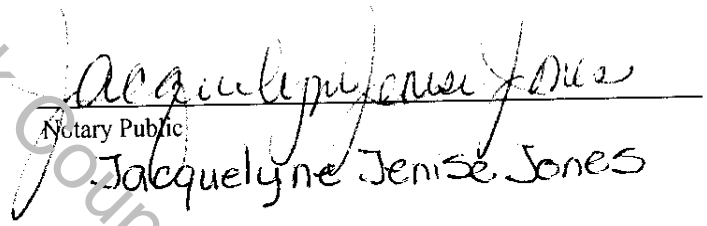 Jacquelyne Jenise Jones
Notary Public
Jacquelyne Jenise Jones